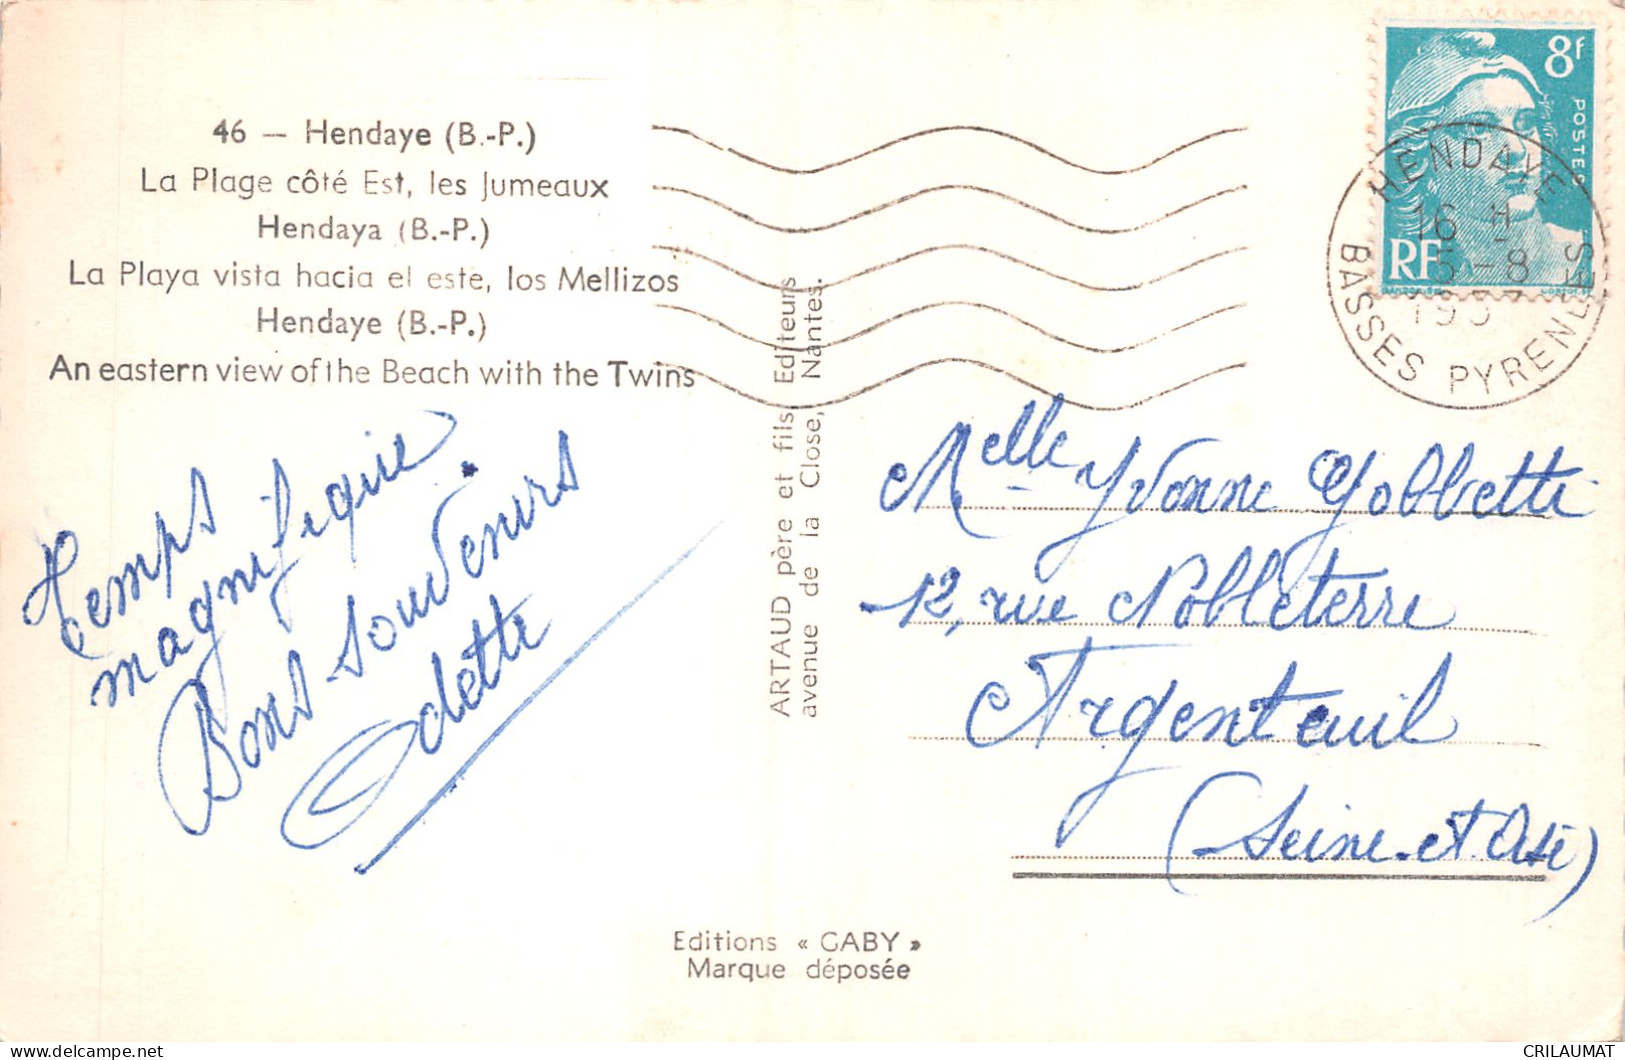 46 — Hendaye (B.-P.)
La Plage côté Est, les Jumeaux
Hendaya (B.-P.)
La Playa vista hacia el este, los Mellizos
Hendaye (B.-P.)
An eastern view of the Beach with the Twins
Temps
magnifique.
Bons souvenirs
Odette
ARTAUD père et fils Editeurs
avenue de la Close, Nantes.
Editions « GABY »
Marque déposée
8f
POSTES
RF
GANDON
CORTOT
HENDAYE
16 H
5-8
195
BASSES PYRENEES
Melle Yvonne
12, rue Nobleterre
Argenteuil
(Seine-et-Oise)
CRILAUMAT